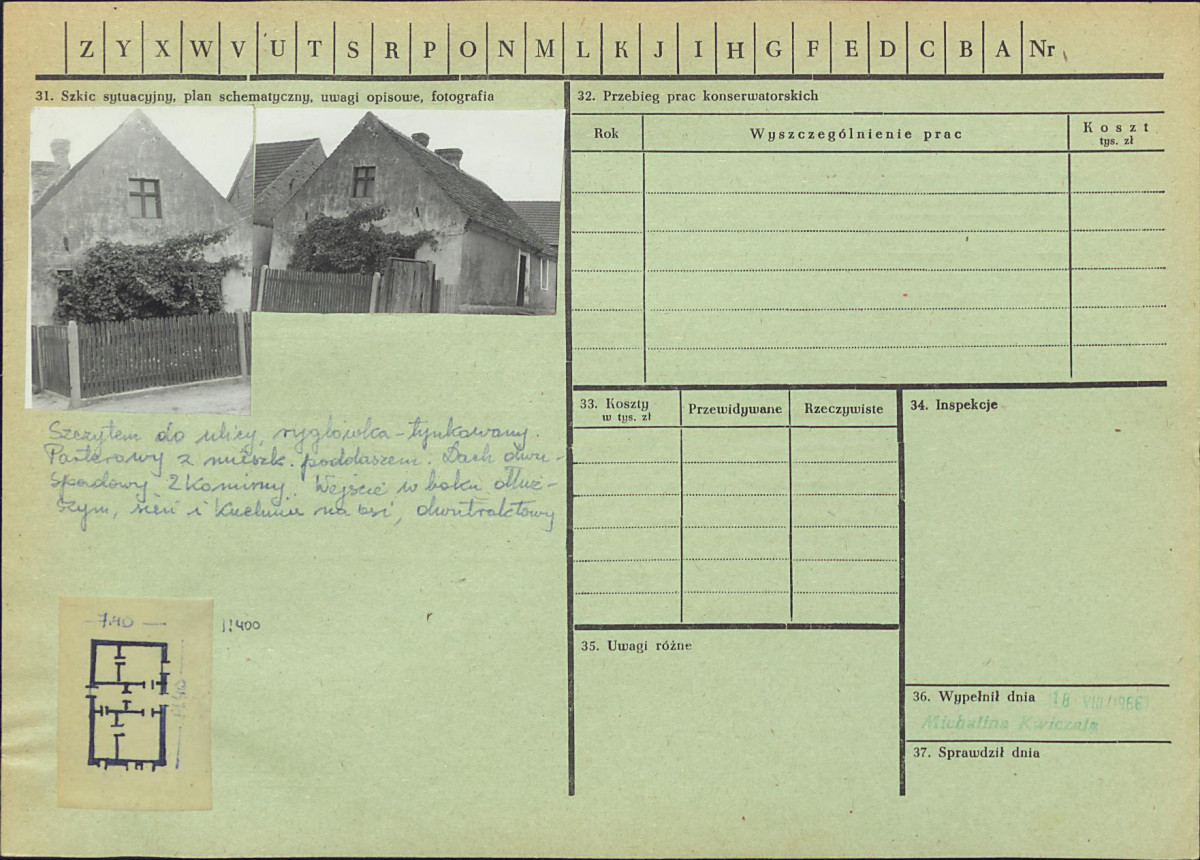 Z Y X W V U T S R P O N M L K J I H G F E D C B A Nr
31. Szkic sytuacyjny, plan schematyczny, uwagi opisowe, fotografia
Szczytem do ulicy, ryglówka - tynkowany.
Parterowy z mieszk. poddaszem. Dach dwu-
spadowy 2 kominy. Wejście w boku dłuż-
szym, sień i kuchnia na osi, dwutraktowy
7.40
1:400
32. Przebieg prac konserwatorskich
Rok Wyszczególnienie prac Koszt
tys. zł
33. Koszty
w tys. zł
Przewidywane Rzeczywiste
34. Inspekcje
35. Uwagi różne
36. Wypełnił dnia 18 VIII 1966
Michalina Kwiczala
37. Sprawdził dnia